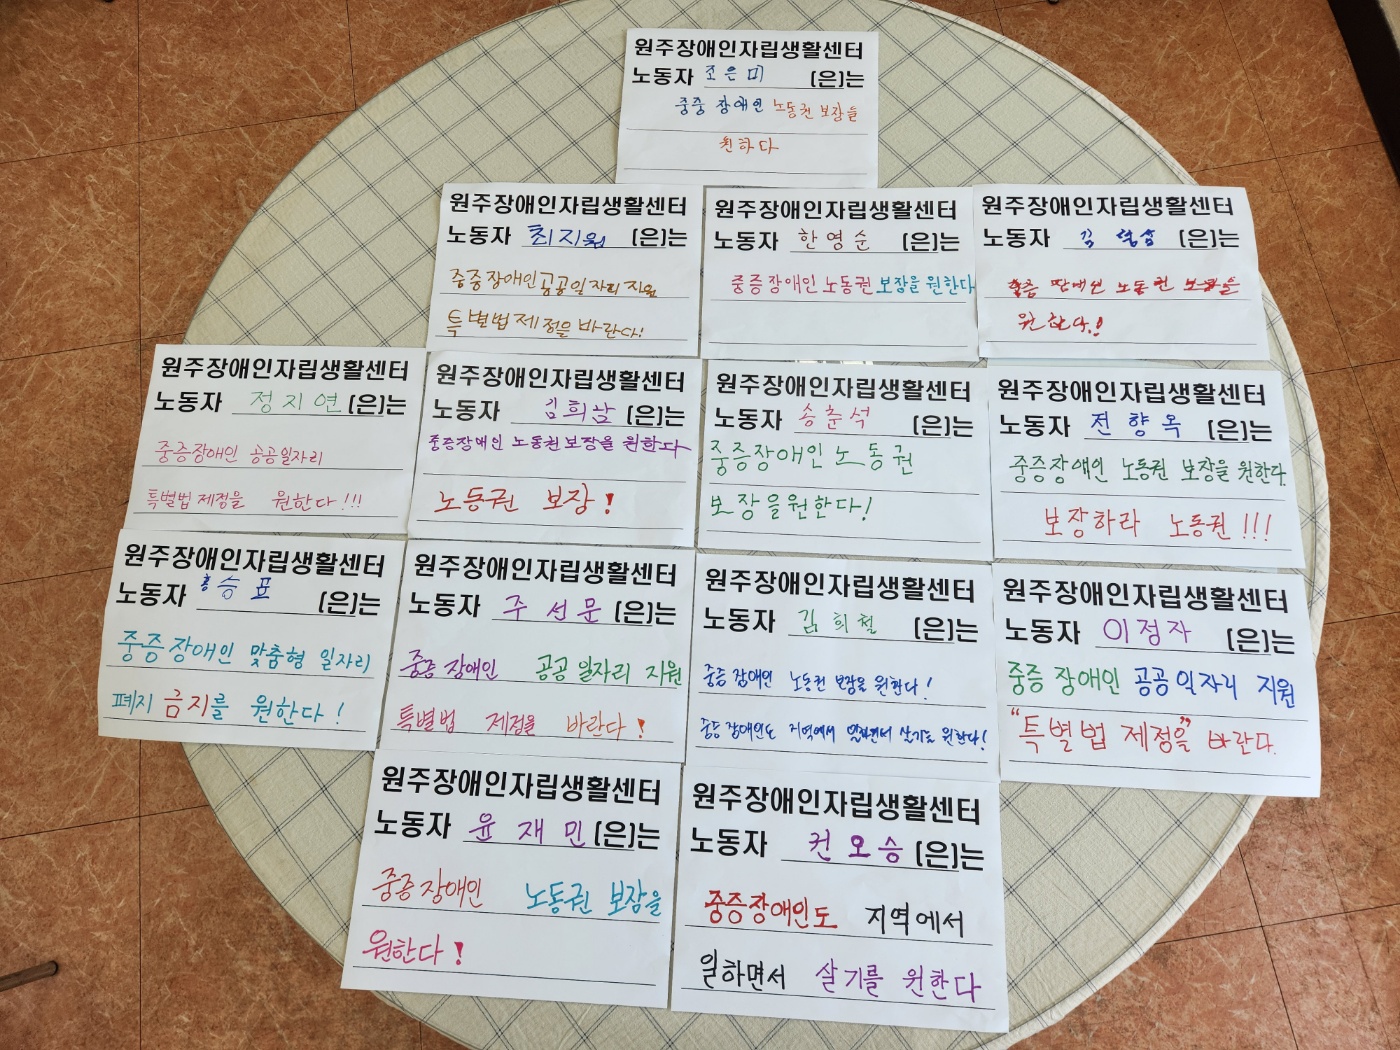 원주장애인자립생활센터
노동자 조은미 (은)는
중증 장애인 노동권 보장을
원하다
원주장애인자립생활센터
노동자 최지원 (은)는
중증장애인공공일자리 지원
특별법제정을 바란다!
원주장애인자립생활센터
노동자 한영순 (은)는
중증장애인 노동권 보장을 원한다
원주장애인자립생활센터
노동자 김 (은)는
중증 장애인 노동권 보장을
원한다.!
원주장애인자립생활센터
노동자 정지연 (은)는
중증장애인 공공일자리
특별법제정을 원한다!!!
원주장애인자립생활센터
노동자 김희삼 (은)는
중증장애인 노동권보장을 원한다
노동권 보장!
원주장애인자립생활센터
노동자 송춘석 (은)는
중증장애인노동권
보장을원한다!
원주장애인자립생활센터
노동자 전향옥 (은)는
중증장애인 노동권 보장을 원한다.
보장하라 노동권!!!
원주장애인자립생활센터
노동자 홍승표 (은)는
중증장애인 맞춤형 일자리
폐지 금지를 원한다!
원주장애인자립생활센터
노동자 주선문 (은)는
중증 장애인 공공일자리 지원
특별법 제정을 바란다!
원주장애인자립생활센터
노동자 김희철 (은)는
중증 장애인 노동권 보장을 원한다!
중증 장애인도 지역에서 일하면서 살기를 원한다!
원주장애인자립생활센터
노동자 이정자 (은)는
중증 장애인 공공일자리 지원
"특별법 제정을" 바란다.
원주장애인자립생활센터
노동자 윤재민 (은)는
중증장애인 노동권 보장을
원한다!
원주장애인자립생활센터
노동자 권오승 (은)는
중증장애인도 지역에서
일하면서 살기를 원한다